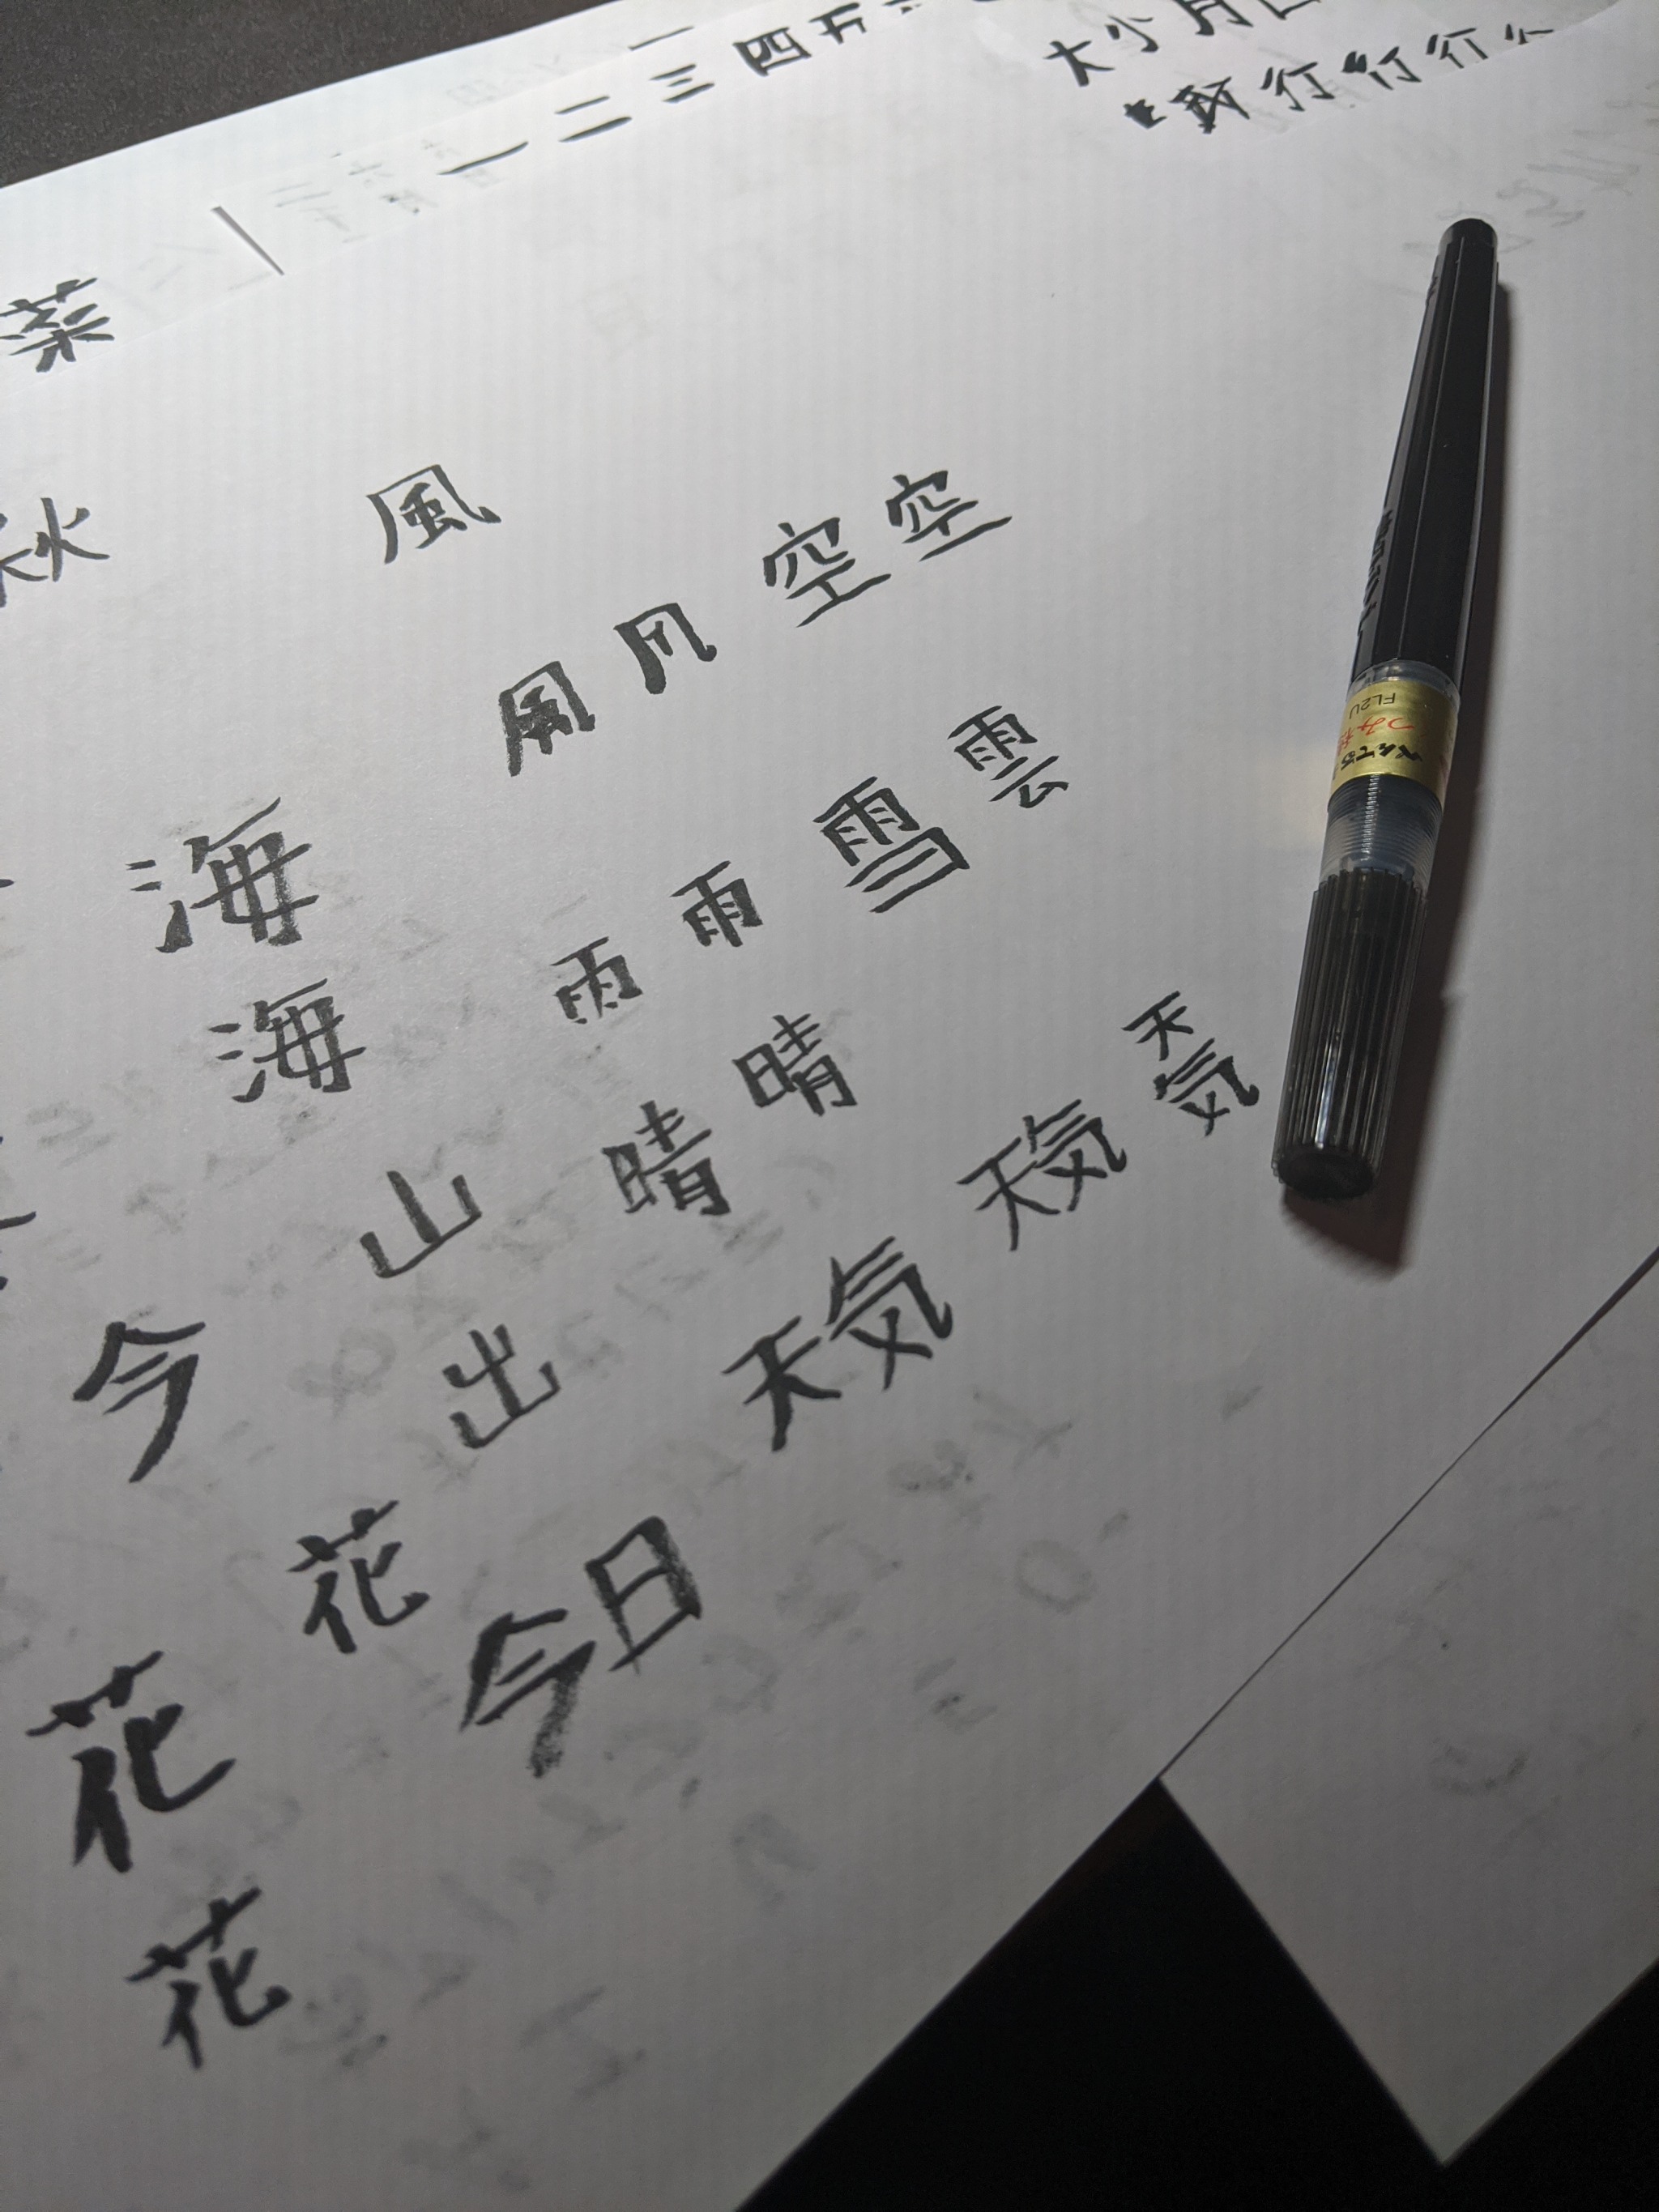 一
一二三四五
大小月
行行行
葉
秋
風
空空
海
雨雨雪雲
海
晴晴
山
天気天気天気
出
今
今日
花
花
花
FL2U